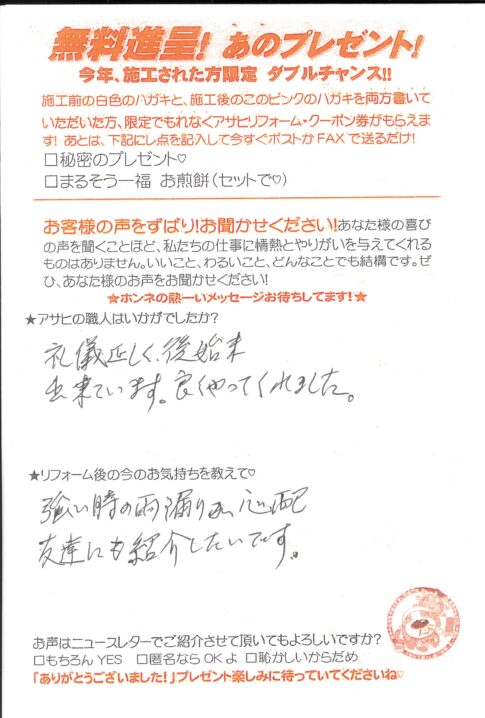 無料進呈! あのプレゼント!
今年、施工された方限定 ダブルチャンス!!
施工前の白色のハガキと、施工後のこのピンクのハガキを両方書いて
いただいた方、限定でもれなくアサヒリフォーム・クーポン券がもらえま
す! あとは、下記にレ点を記入して今すぐポストかFAXで送るだけ!
□秘密のプレゼント♡
□まるそう一福 お煎餅(セットで♡)
お客様の声をずばり!お聞かせください!あなた様の喜び
の声を聞くことほど、私たちの仕事に情熱とやりがいを与えてくれる
ものはありません。いいこと、わるいこと、どんなことでも結構です。ぜ
ひ、あなた様のお声をお聞かせください!
★ホンネの熱ーいメッセージお待ちしてます!★
★アサヒの職人はいかがでしたか?
礼儀正しく、後始末
出来ています。良くやってくれました。
★リフォーム後の今のお気持ちを教えて♡
強い時の雨漏り 心配
友達にも紹介したいです。
お声はニュースレターでご紹介させて頂いてもよろしいですか?
□もちろん YES □匿名なら OK よ □恥かしいからだめ
「ありがとうございました!」プレゼント楽しみに待っていてくださいね♡